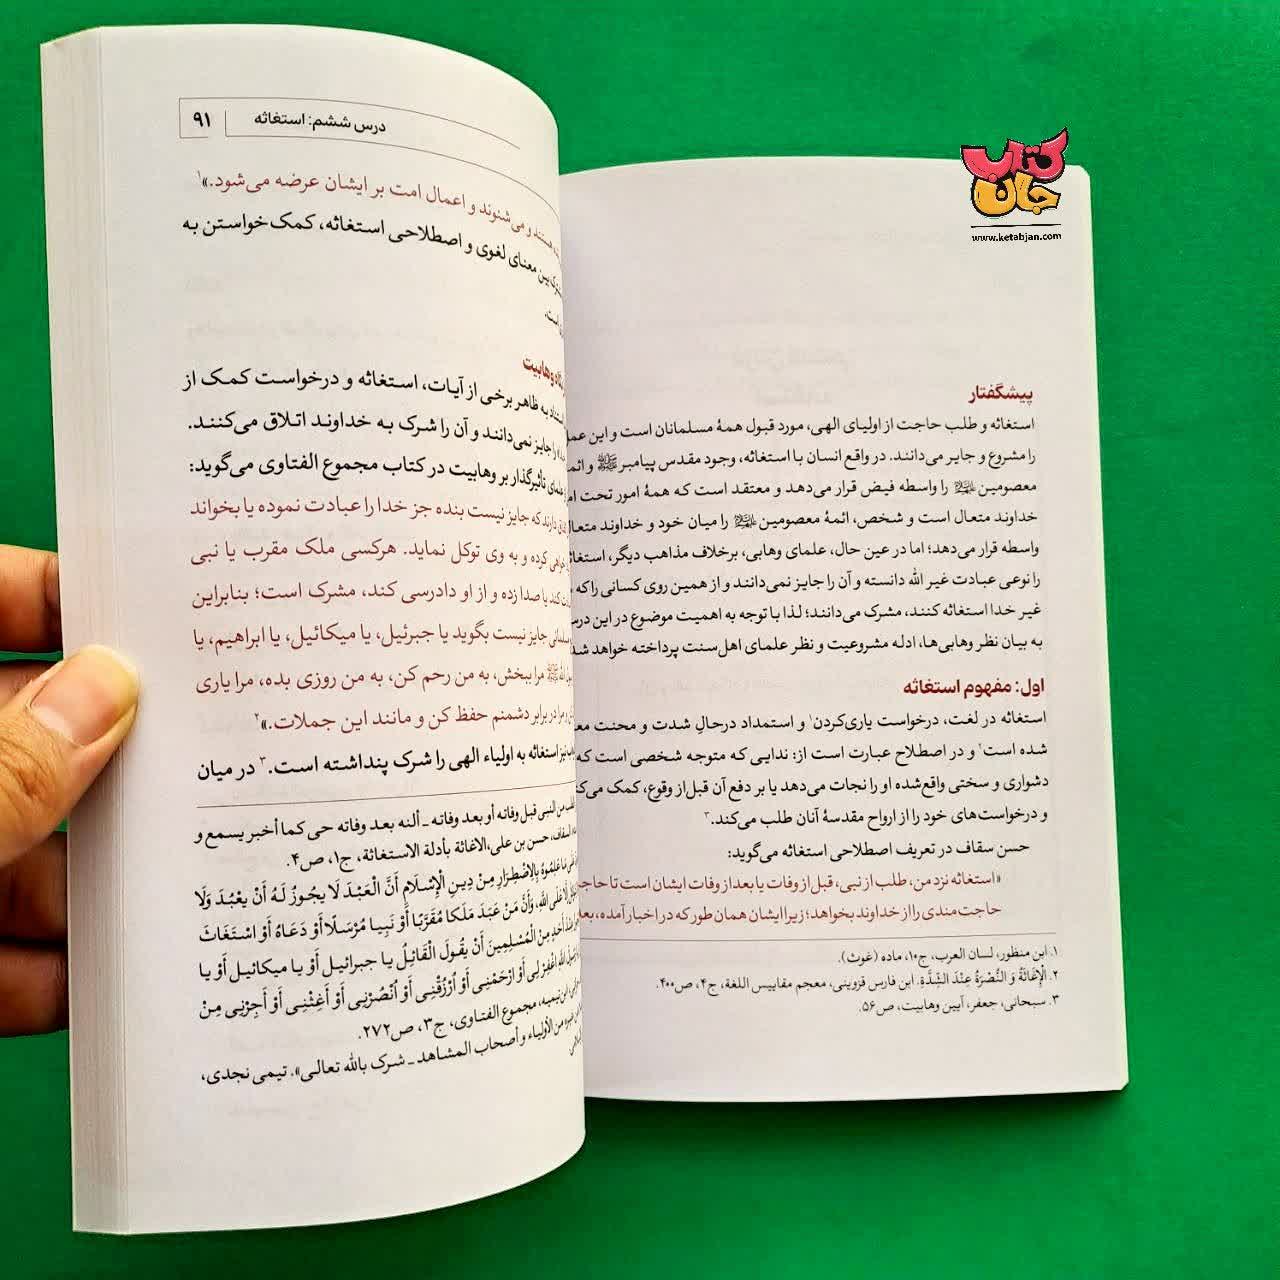 کتاب
جان
www.ketabjan.com
پیشگفتار
استغاثه و طلب حاجت از اولیای الهی، مورد قبول همهٔ مسلمانان است و این عمل
را مشروع و جایز می‌دانند. در واقع انسان با استغاثه، وجود مقدس پیامبر ﷺ و ائمه
معصومین را واسطه فیض قرار می‌دهد و معتقد است که همهٔ امور تحت
خداوند متعال است و شخص، ائمهٔ معصومین را میان خود و خداوند متعال
واسطه قرار می‌دهد؛ اما در عین حال، علمای وهابی، برخلاف مذاهب دیگر، استغاثه
را نوعی عبادت غیر الله دانسته و آن را جایز نمی‌دانند و از همین روی کسانی را که
غیر خدا استغاثه کنند، مشرک می‌دانند؛ لذا با توجه به اهمیت موضوع در این درس
به بیان نظر وهابی‌ها، ادله مشروعیت و نظر علمای اهل‌سنت پرداخته خواهد شد
اول: مفهوم استغاثه
استغاثه در لغت، درخواست یاری‌کردن۱ و استمداد درحالِ شدت و محنت
شده است۲ و در اصطلاح عبارت است از: ندایی که متوجه شخصی است که
دشواری و سختی واقع‌شده او را نجات می‌دهد یا بر دفع آن قبل‌از وقوع، کمک می‌کند
و درخواست‌های خود را از ارواح مقدسهٔ آنان طلب می‌کند.۳
حسن سقاف در تعریف اصطلاحی استغاثه می‌گوید:
«استغاثه نزد من، طلب از نبی، قبل‌از وفات یا بعد از وفات ایشان است تا حاجت
حاجت‌مندی را از خداوند بخواهد؛ زیرا ایشان همان طور که در اخبار آمده، بعد
۱. ابن منظور، لسان العرب، ج۱۰، ماده (غوث).
۲. الْإِغَاثَةُ وَ النُّصْرَةُ عِنْدَ الشِّدَّةِ. ابن فارس قزوینی، معجم مقاییس اللغة، ج۴، ص۴۰۰.
۳. سبحانی، جعفر، آیین وهابیت، ص۵۶.
درس ششم: استغاثه ۹۱
هستند و می‌شنوند و اعمال امت بر ایشان عرضه می‌شود.»۱
بین معنای لغوی و اصطلاحی استغاثه، کمک خواستن به
است.
وهابیت
به ظاهر برخی از آیات، استغاثه و درخواست کمک از
را جایز نمی‌دانند و آن را شرک به خداوند اتلاق می‌کنند.
تاثیرگذار بر وهابیت در کتاب مجموع الفتاوی می‌گوید:
دارند که جایز نیست بنده جز خدا را عبادت نموده یا بخواند
کرده و به وی توکل نماید. هرکسی ملک مقرب یا نبی
کند یا صدا زده و از او دادرسی کند، مشرک است؛ بنابراین
جایز نیست بگوید یا جبرئیل، یا میکائیل، یا ابراهیم، یا
ﷺ مرا ببخش، به من رحم کن، به من روزی بده، مرا یاری
در برابر دشمنم حفظ کن و مانند این جملات.»۲
نیز استغاثه به اولیاء الهی را شرک پنداشته است.۳ در میان
من النبي قبل وفاته أو بعد وفاته ـ ألنه بعد وفاته حي كما أخبر يسمع و
السقاف، حسن بن علی، الاغاثة بأدلة الاستغاثة، ج۱، ص۴.
مَا عَلِمُوهُ بِالِاضْطِرَارِ مِنْ دِينِ الْإِسْلَامِ أَنَّ الْعَبْدَ لَا يَجُوزُ لَهُ أَنْ يَعْبُدَ وَلَا
إلَّا عَلَى اللَّهِ، وَأَنَّ مَنْ عَبَدَ مَلَكًا مُقَرَّبًا أَوْ نَبِيا مُرْسَلًا أَوْ دَعَاهُ أَوْ اسْتَغَاثَ
أَحَدٍ مِنْ الْمُسْلِمِينَ أَنْ يَقُولَ الْقَائِلُ يا جبرائيل أَوْ يا ميكائيل أَوْ يا
اللَّهِ اغْفِرْ لِي أَوْ ارْحَمْنِي أَوْ اُرْزُقْنِي أَوْ اُنْصُرْنِي أَوْ أَغِثْنِي أَوْ أَجِرْنِي مِنْ
ابن تیمیه، مجموع الفتاوی، ج۳، ص۲۷۲.
من الأولياء و أصحاب المشاهد ـ شرك بالله تعالى». تیمی نجدی،